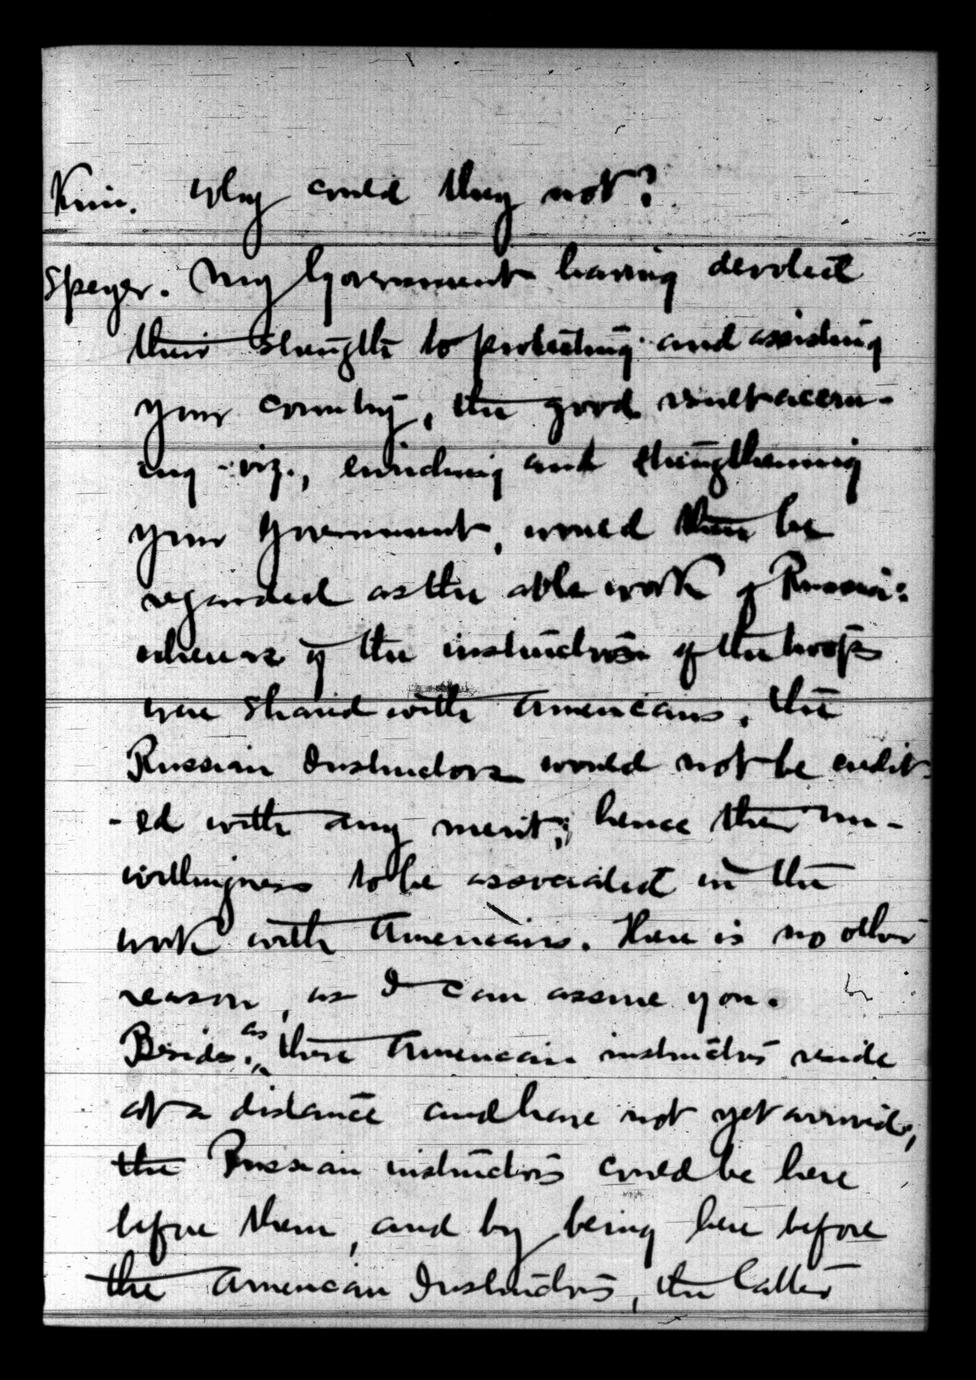 Kim. Why could they not?
Speyer. My Government having devoted
their strength to protecting and assisting
your country, the good result accru-
ing - viz., enriching and strengthening
your Government, would then be
regarded as the able work of Russia:
whereas if the instructors of the troops
were shared with Americans, the
Russian Instructors would not be credit-
-ed with any merit; hence their un-
willingness to be associated in the
work with Americans. There is no other
reason, as I can assure you.
Besides, as these American instructors reside
at a distance and have not yet arrived,
the Russian instructors could be here
before them, and by being here before
the American Instructors, the latter